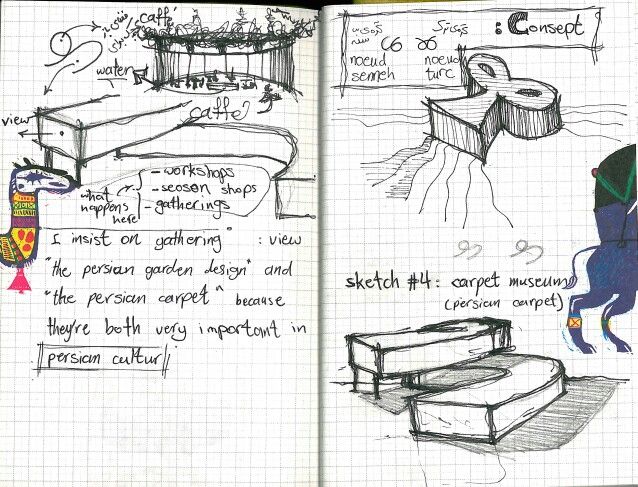 caffé
water
caffé
view
what happens here
- workshops
- seoson shops
- gatherings
I insist on gathering" : view
"the persian garden design" and
"the persian carpet" because
they're both very important in
persian cultur
: Consept
noeud senneh
noeud turc
sketch #4: carpet museum
(persian carpet)